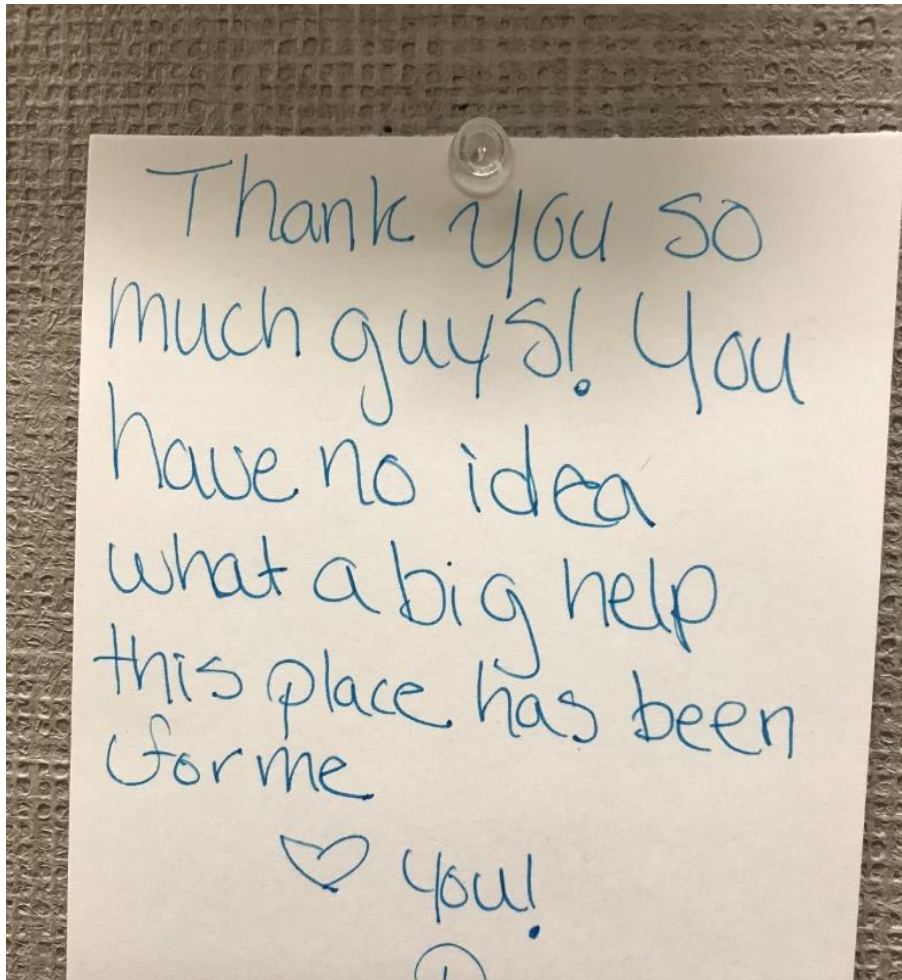 Thank you so
much guys! You
have no idea
what a big help
this place has been
for me
♡ you!